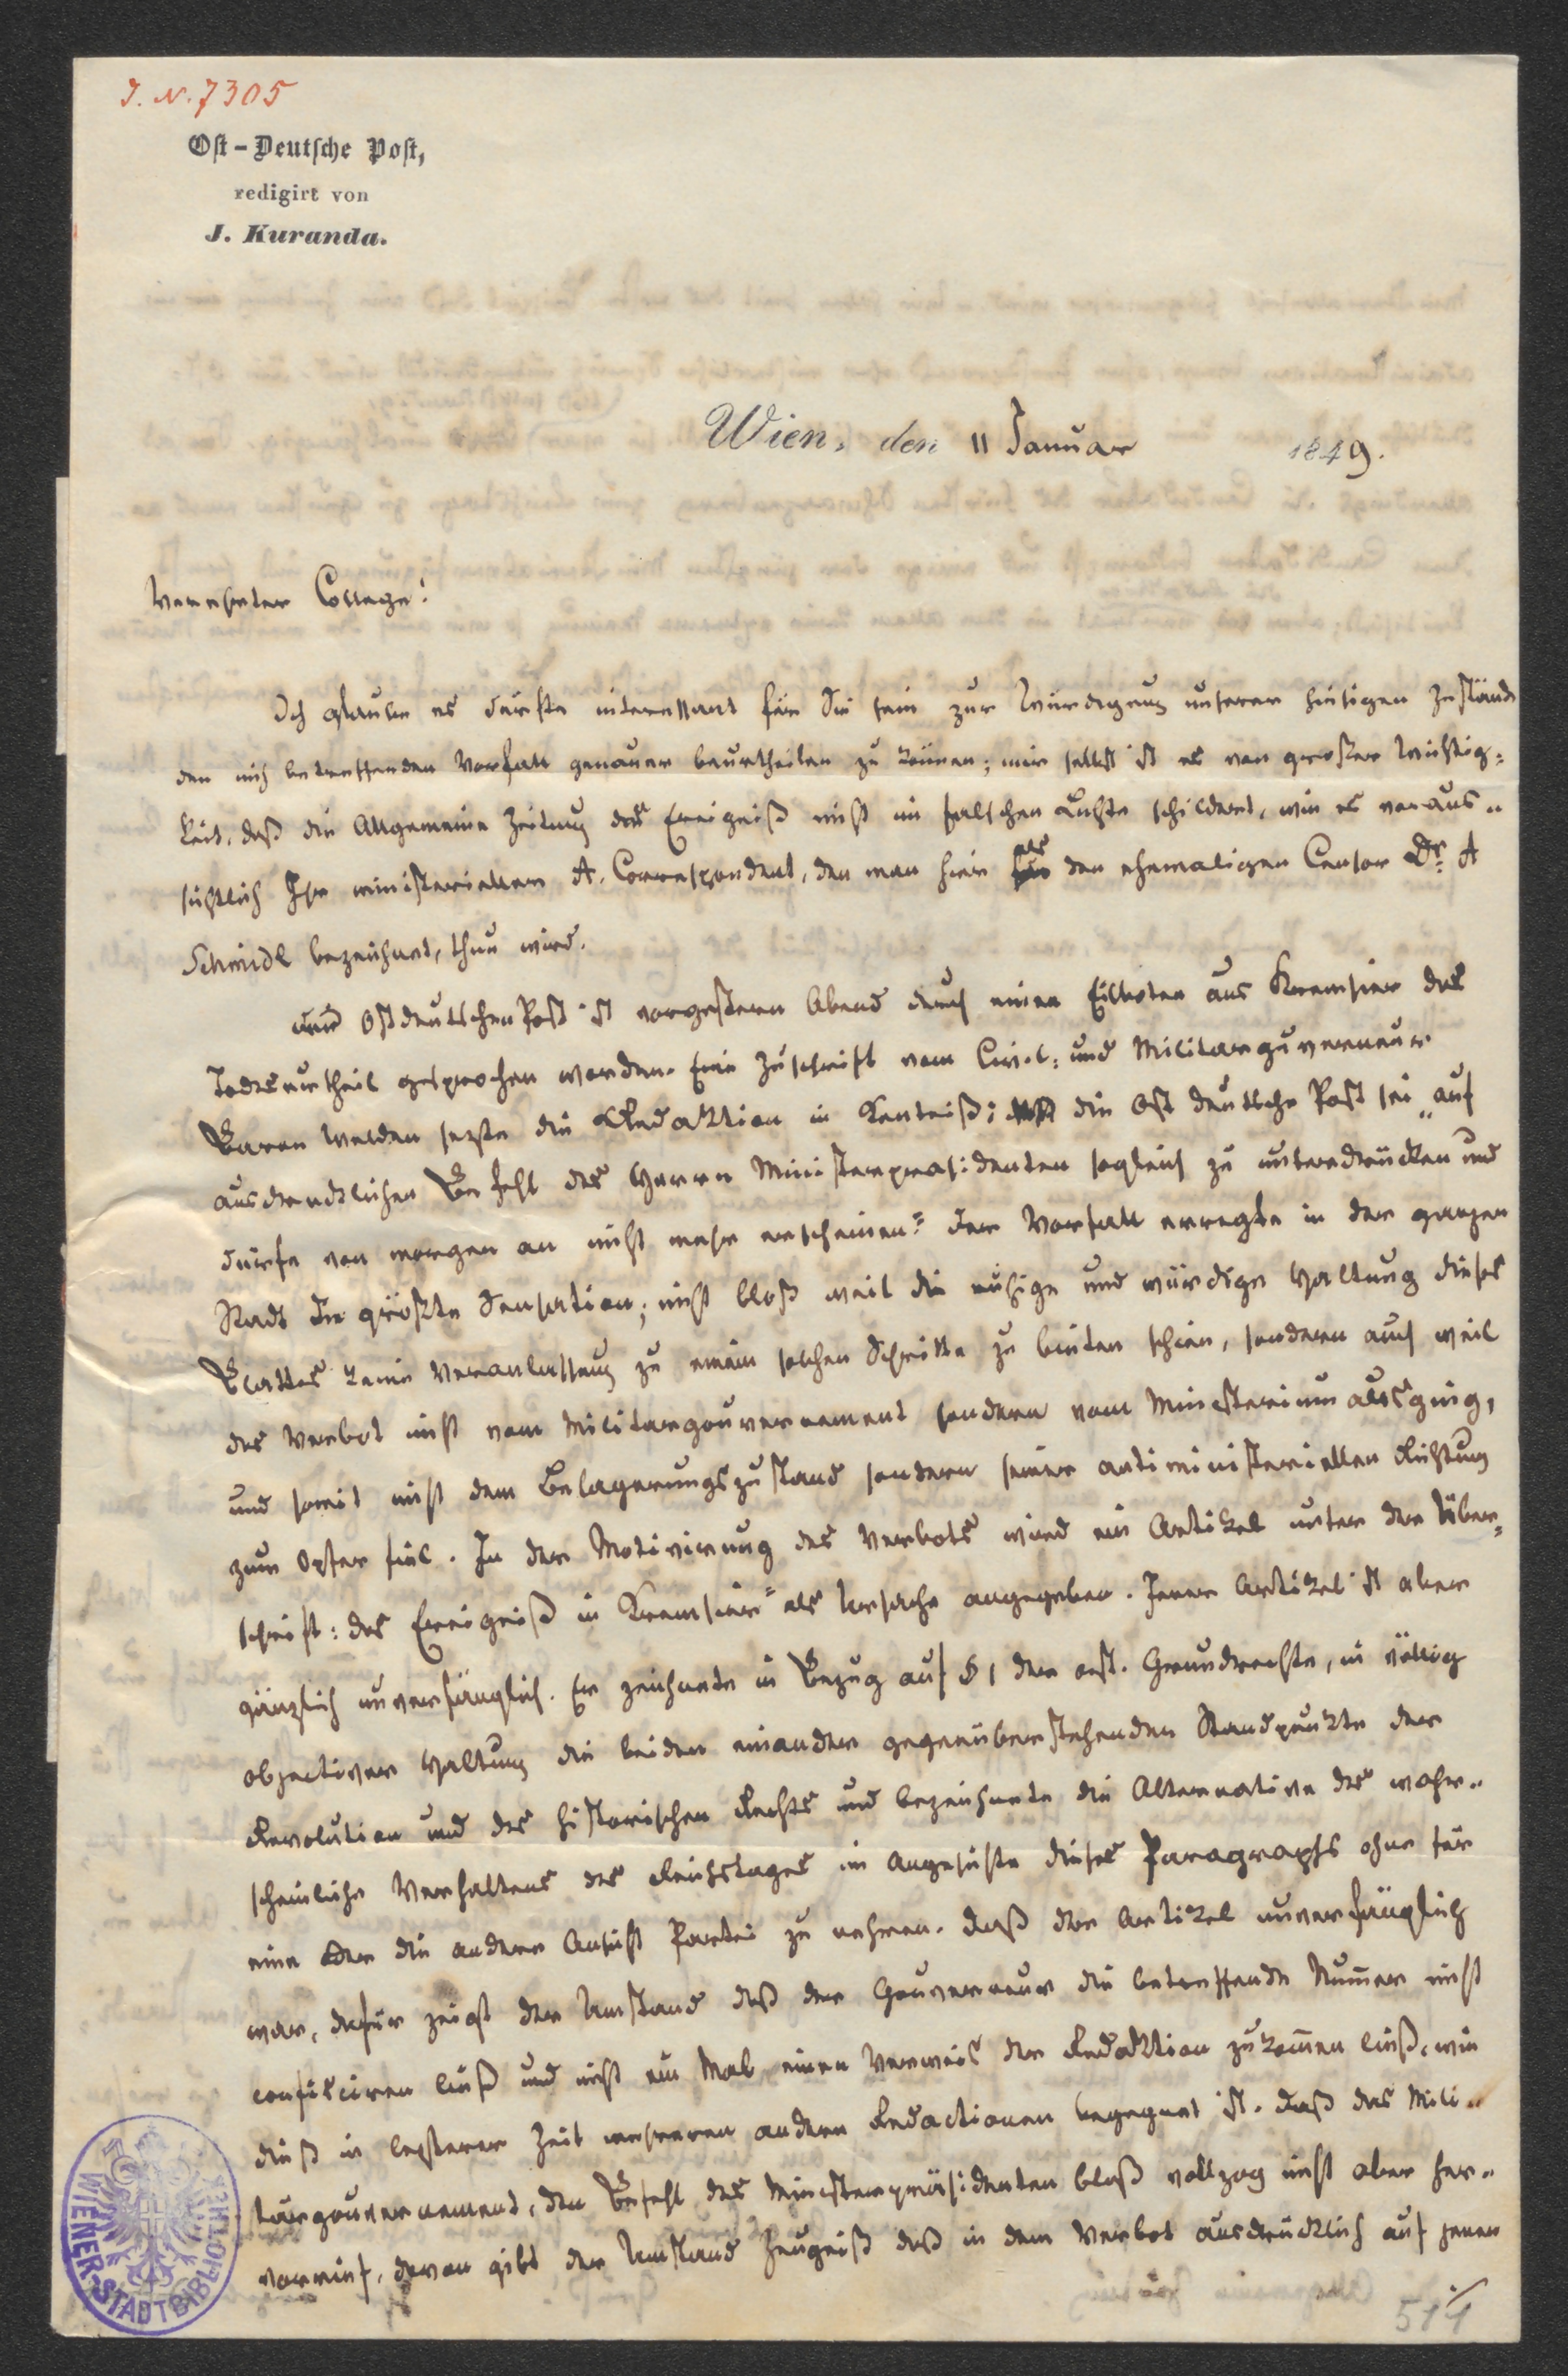 J. N. 7305
Ost-Deutsche Post,
redigirt von
J. Kuranda.
Wien, den 11 Januar 1849.
Verehrter College!
Ich glaube es dürfte interessant für Sie sein zur Würdigung unserer hiesigen Zustände
den mich betreffenden Vorfall genauer beurtheilen zu können; mir selbst ist es von großer Wichtig-
keit, daß die Allgemeine Zeitung das Ereigniß nicht im falschen Lichte schildert, wie es voraus-
sichtlich Ihr ministerieller A. Correspondent, den man hier als den ehemaligen Censor Dr. A
Schmidl bezeichnet, thun wird.
Der Ostdeutschen Post ist vorgestern Abend durch einen Eilboten aus Kremsier das
Todesurtheil gesprochen worden. Eine Zuschrift vom Civil- und Militärguverneur
Baron Welden setzte die Redaktion in Kentniß: die Ost deutsche Post sei „auf
ausdrücklichen Befehl des Herrn Ministerpräsidenten sogleich zu unterdrücken und
dürfe von morgen an nicht mehr erscheinen“ Der Vorfall erregte in der ganzen
Stadt die größte Sensation; nicht bloß weil die ruhige und würdige Haltung dieses
Blattes keine Veranlassung zu einem solchen Schritte zu bieten schien, sondern auch weil
das Verbot nicht vom Militärgouvernement sondern vom Ministerium ausging,
und somit nicht dem Belagerungszustand sondern seiner antiministeriellen Richtung
zum Opfer fiel. In der Motivirung des Verbots wird ein Artikel unter der Über-
schrift: das Ereigniß in Kremsier“ als Ursache angegeben. Jener Artikel ist aber
gänzlich unverfänglich. Er zeichnete in Bezug auf § 1 der öst. Grundrechte, in völlig
objectiver Haltung die beiden einander gegenüberstehenden Standpunkte der
Revolution und des historischen Rechts und bezeichnete die Alternative des wahr-
scheinliche Verhaltens des Reichstages im Angesichte dieses Paragraphs ohne für
eine oder die andere Ansicht Partei zu nehmen. Daß der Artikel unverfänglich
war, dafür zeigt der Umstand daß der Gouverneur die betreffende Nummer nicht
confisciren ließ und nicht ein Mal einen Verweis der Redaktion zukommen ließ, wie
dieß in letzterer Zeit mehreren andern Redactionen begegnet ist. Daß das Mili-
tärgouvernement, den Befehl des Ministerpräsidenten bloß vollzog nicht aber her-
vorrief, davon gibt der Umstand Zeugniß daß in dem Verbot ausdrücklich auf jenen
./.
514
WIENER STADTBIBLIOTHEK